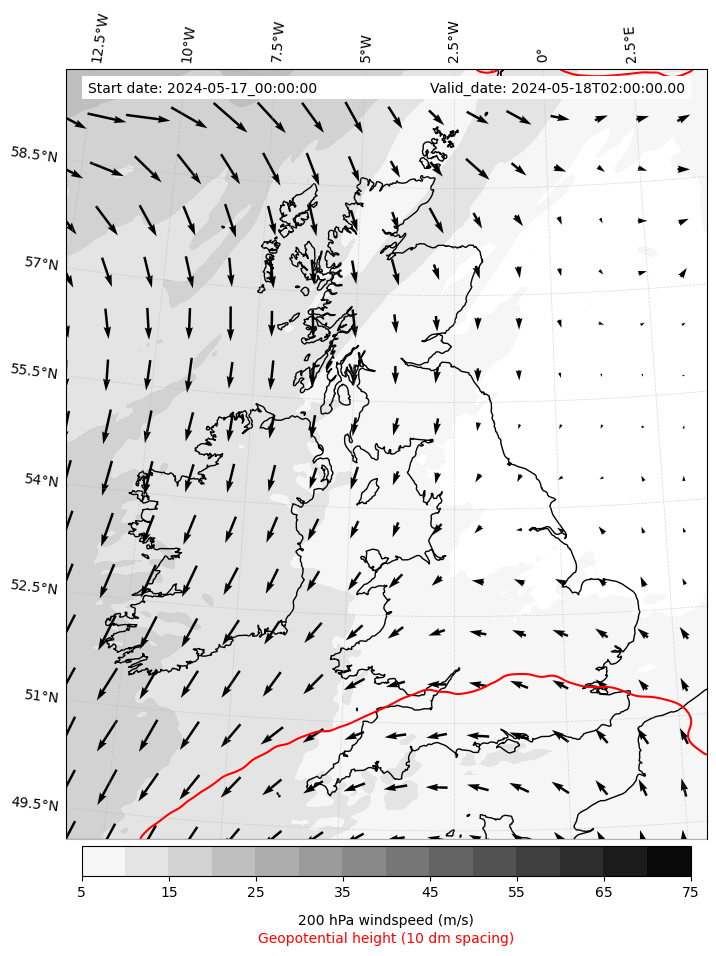 12.5°W 10°W 7.5°W 5°W 2.5°W 0° 2.5°E
Start date: 2024-05-17_00:00:00 Valid_date: 2024-05-18T02:00:00.00
58.5°N
57°N
55.5°N
54°N
52.5°N
51°N
49.5°N
5 15 25 35 45 55 65 75
200 hPa windspeed (m/s)
Geopotential height (10 dm spacing)